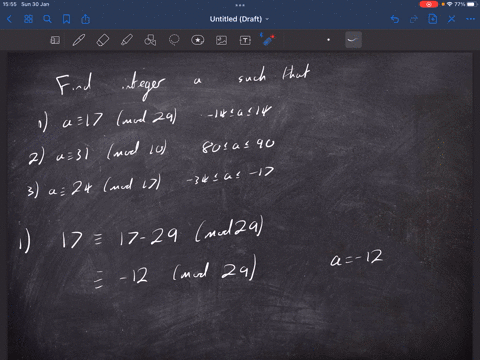 15:55 Sun 30 Jan
77%
Untitled (Draft)
Find integer a such that
1) a ≡ 17 (mod 29) -14 ≤ a ≤ 14
2) a ≡ 31 (mod 10) 80 ≤ a ≤ 90
3) a ≡ 24 (mod 17) -34 ≤ a ≤ -17
1) 17 ≡ 17-29 (mod 29)
≡ -12 (mod 29)
a = -12